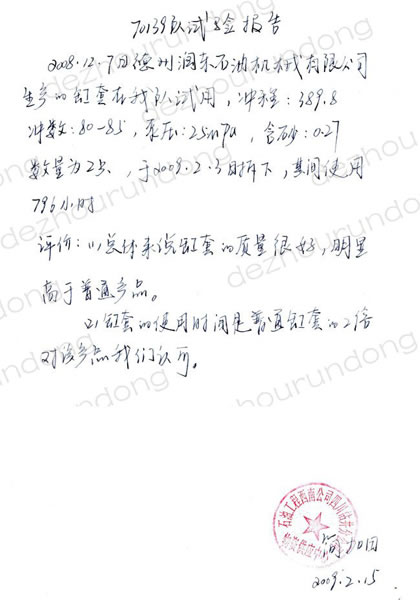 70139队试验报告
2008.12.7日德州润东石油机械有限公司
生产的缸套在我队试用，冲程：389.8
冲数：80-85，泵压：25mpa，含砂：0.27
数量为2只，于2009.2.3日拆下，其间使用
796小时
评价：(1)总体来说缸套的质量很好，明显
高于普通产品。
(2)缸套的使用时间是普通缸套的2倍
对该产品我们认可。
石油工程西南公司四川钻井
物资供应中心
加田
2009.2.15
dezhourundong